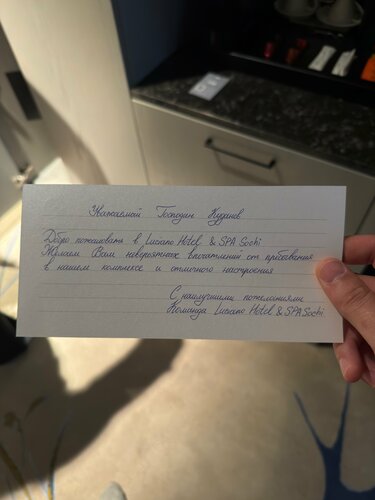 Уважаемый Господин Кудачев
Добро пожаловать в Luciano Hotel & SPA Sochi
Желаем Вам невероятных впечатлений от пребывания
в нашем комплексе и отличного настроения
С наилучшими пожеланиями
Команда Luciano Hotel & SPA Sochi